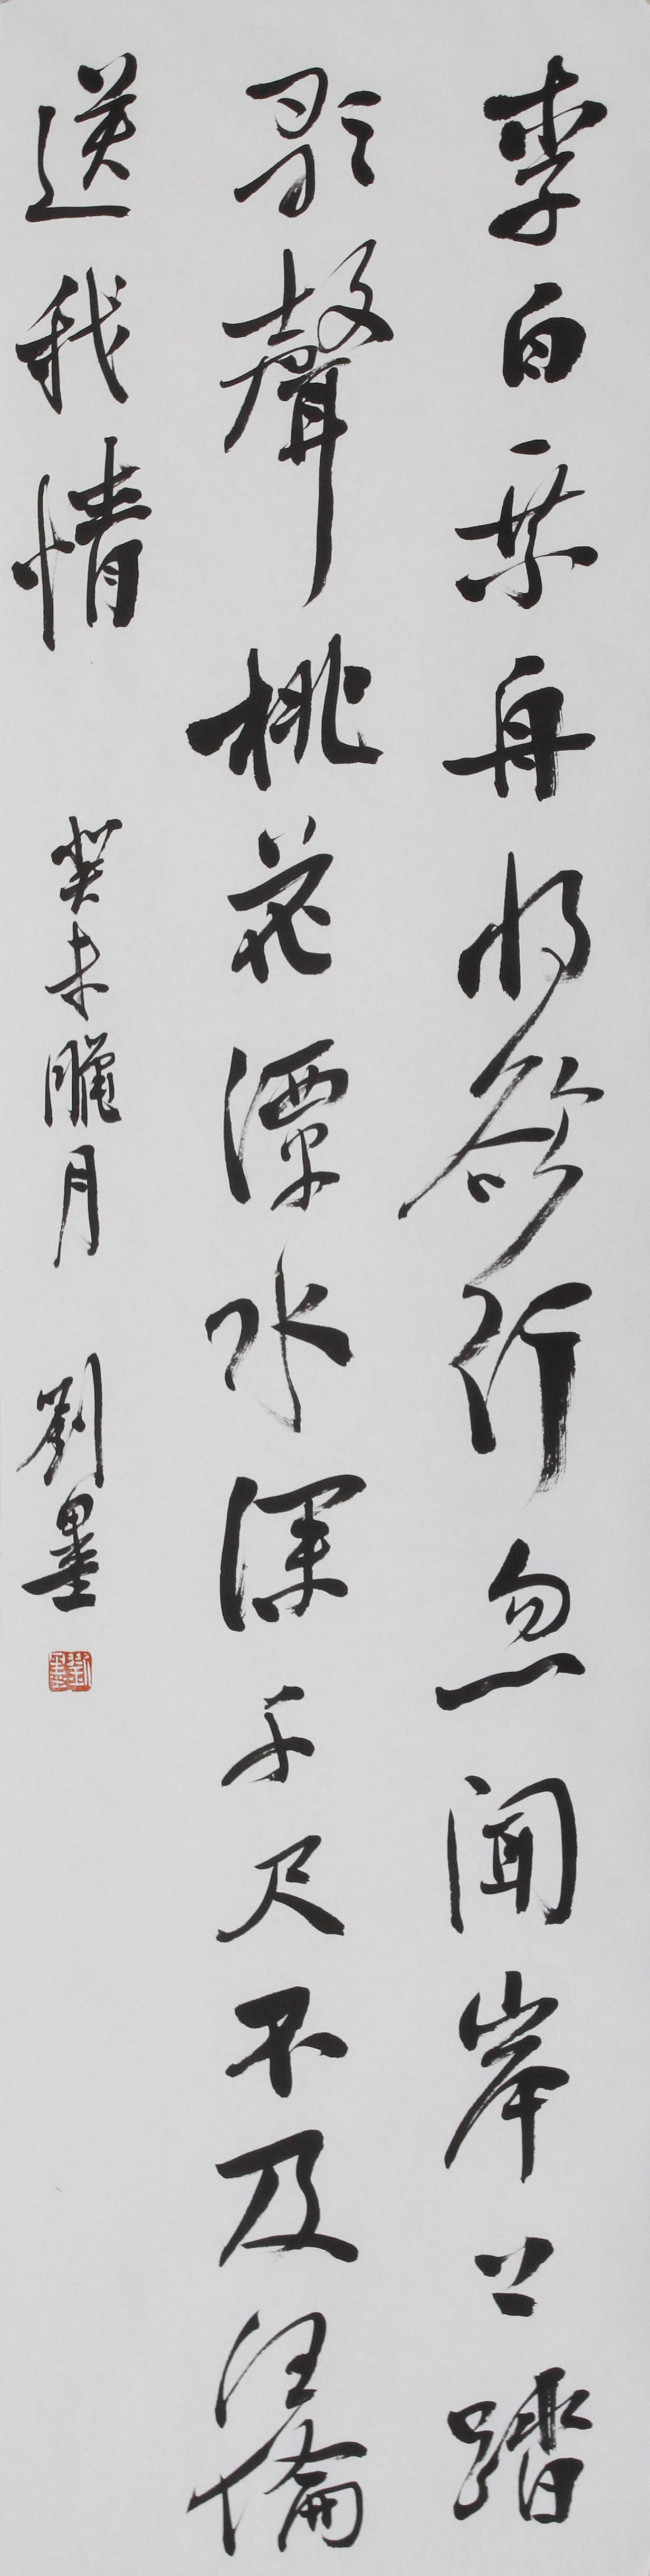 李白乘舟將欲行忽聞岸上踏
歌聲桃花潭水深千尺不及汪倫
送我情
癸未臘月 劉墨
劉墨